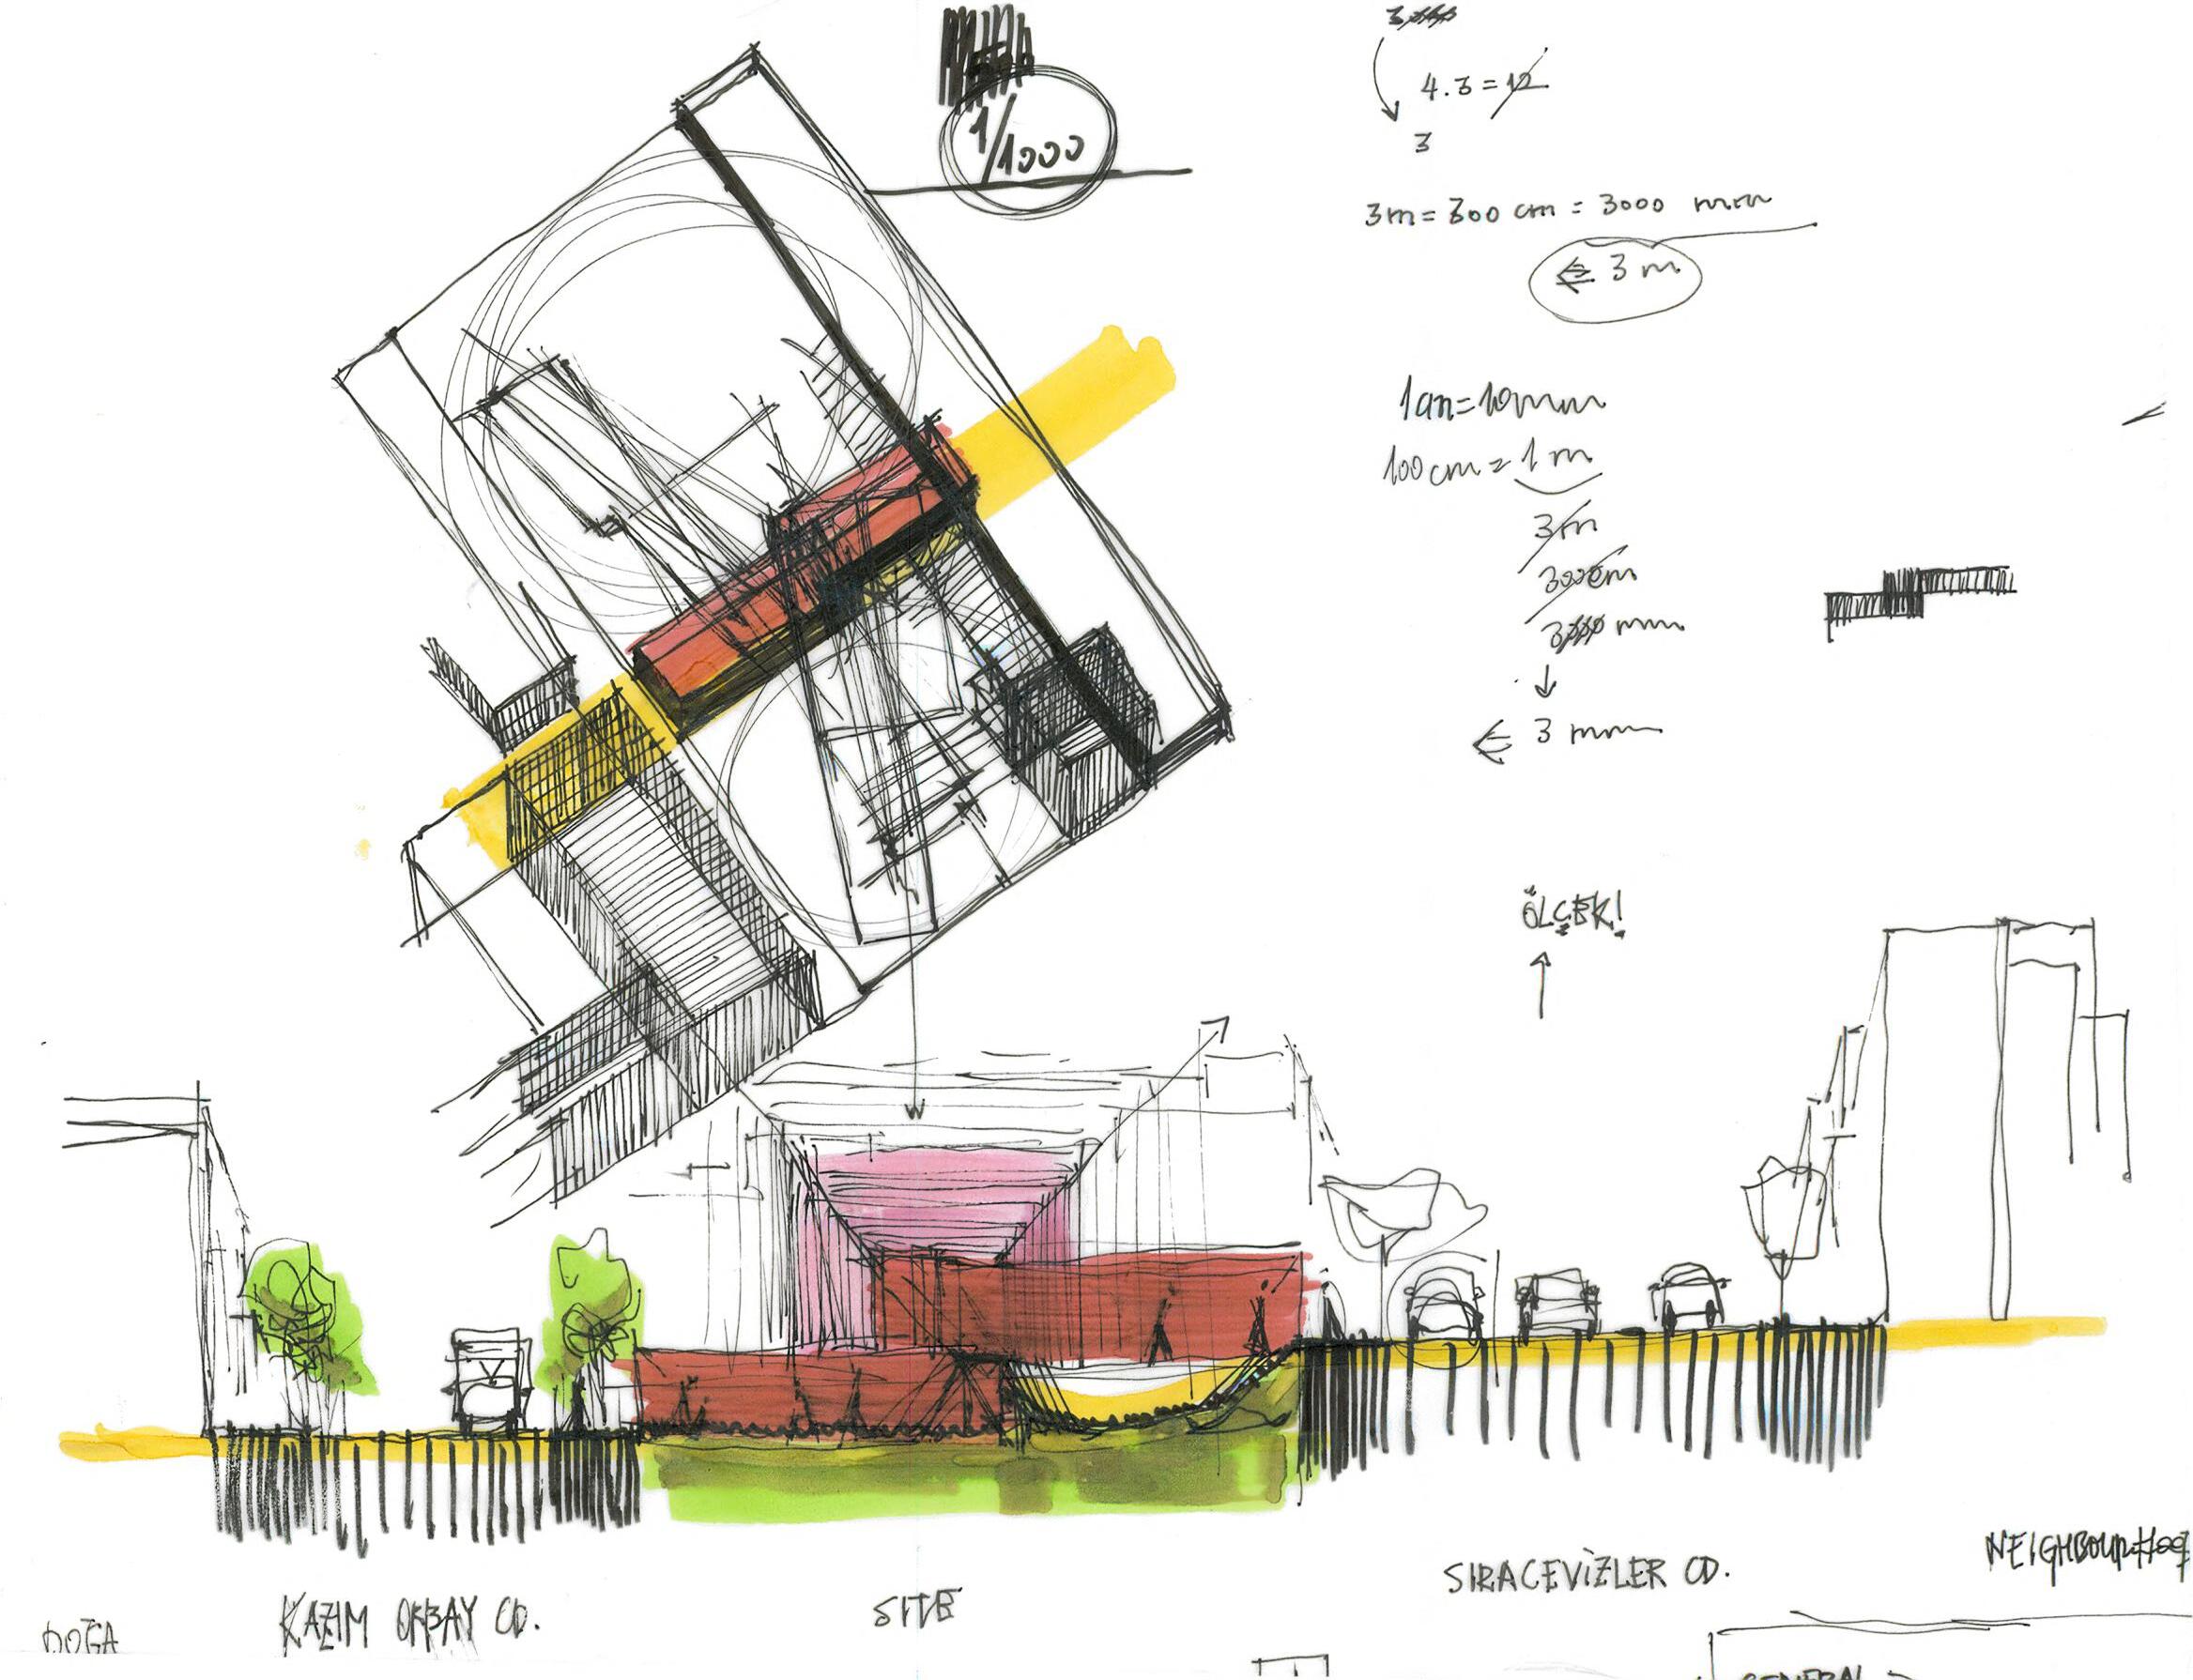 1/1000
4.3=12
3
3m = 300 cm = 3000 mm
⇐ 3 m
1cm=10mm
100cm = 1 m
3m
300cm
3000 mm
↓
⇐ 3 mm
ÖLÇEK!
↑
NEIGHBOURHOOD
SIRACEVİZLER CD.
KAZIM ORBAY CD.
SITE
DOĞA
GENERAL